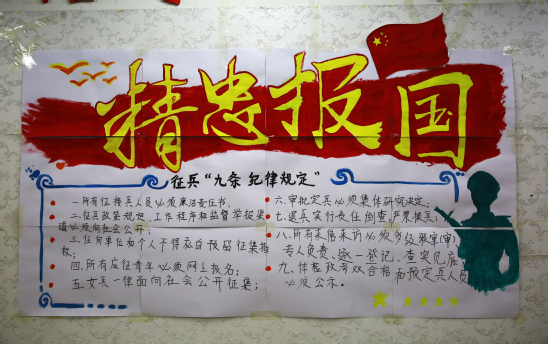 精忠报国
征兵“九条纪律规定”
一.所有征接兵人员必须廉洁责任书;
二.征兵政策规定、工作程序和监督举报渠
道必须向社会公开;
三.任何单位和个人不得私自预留征集指
标;
四.所有应征青年必须网上报名;
五.女兵一律面向社会公开征集;
六.审批定兵必须集体研究决定;
七.退兵实行责任倒查,严肃
八.所有来信来访必须
专人负责、逐一登记、查实见底
九.体检政考双合格和预定兵人员
必须公示。